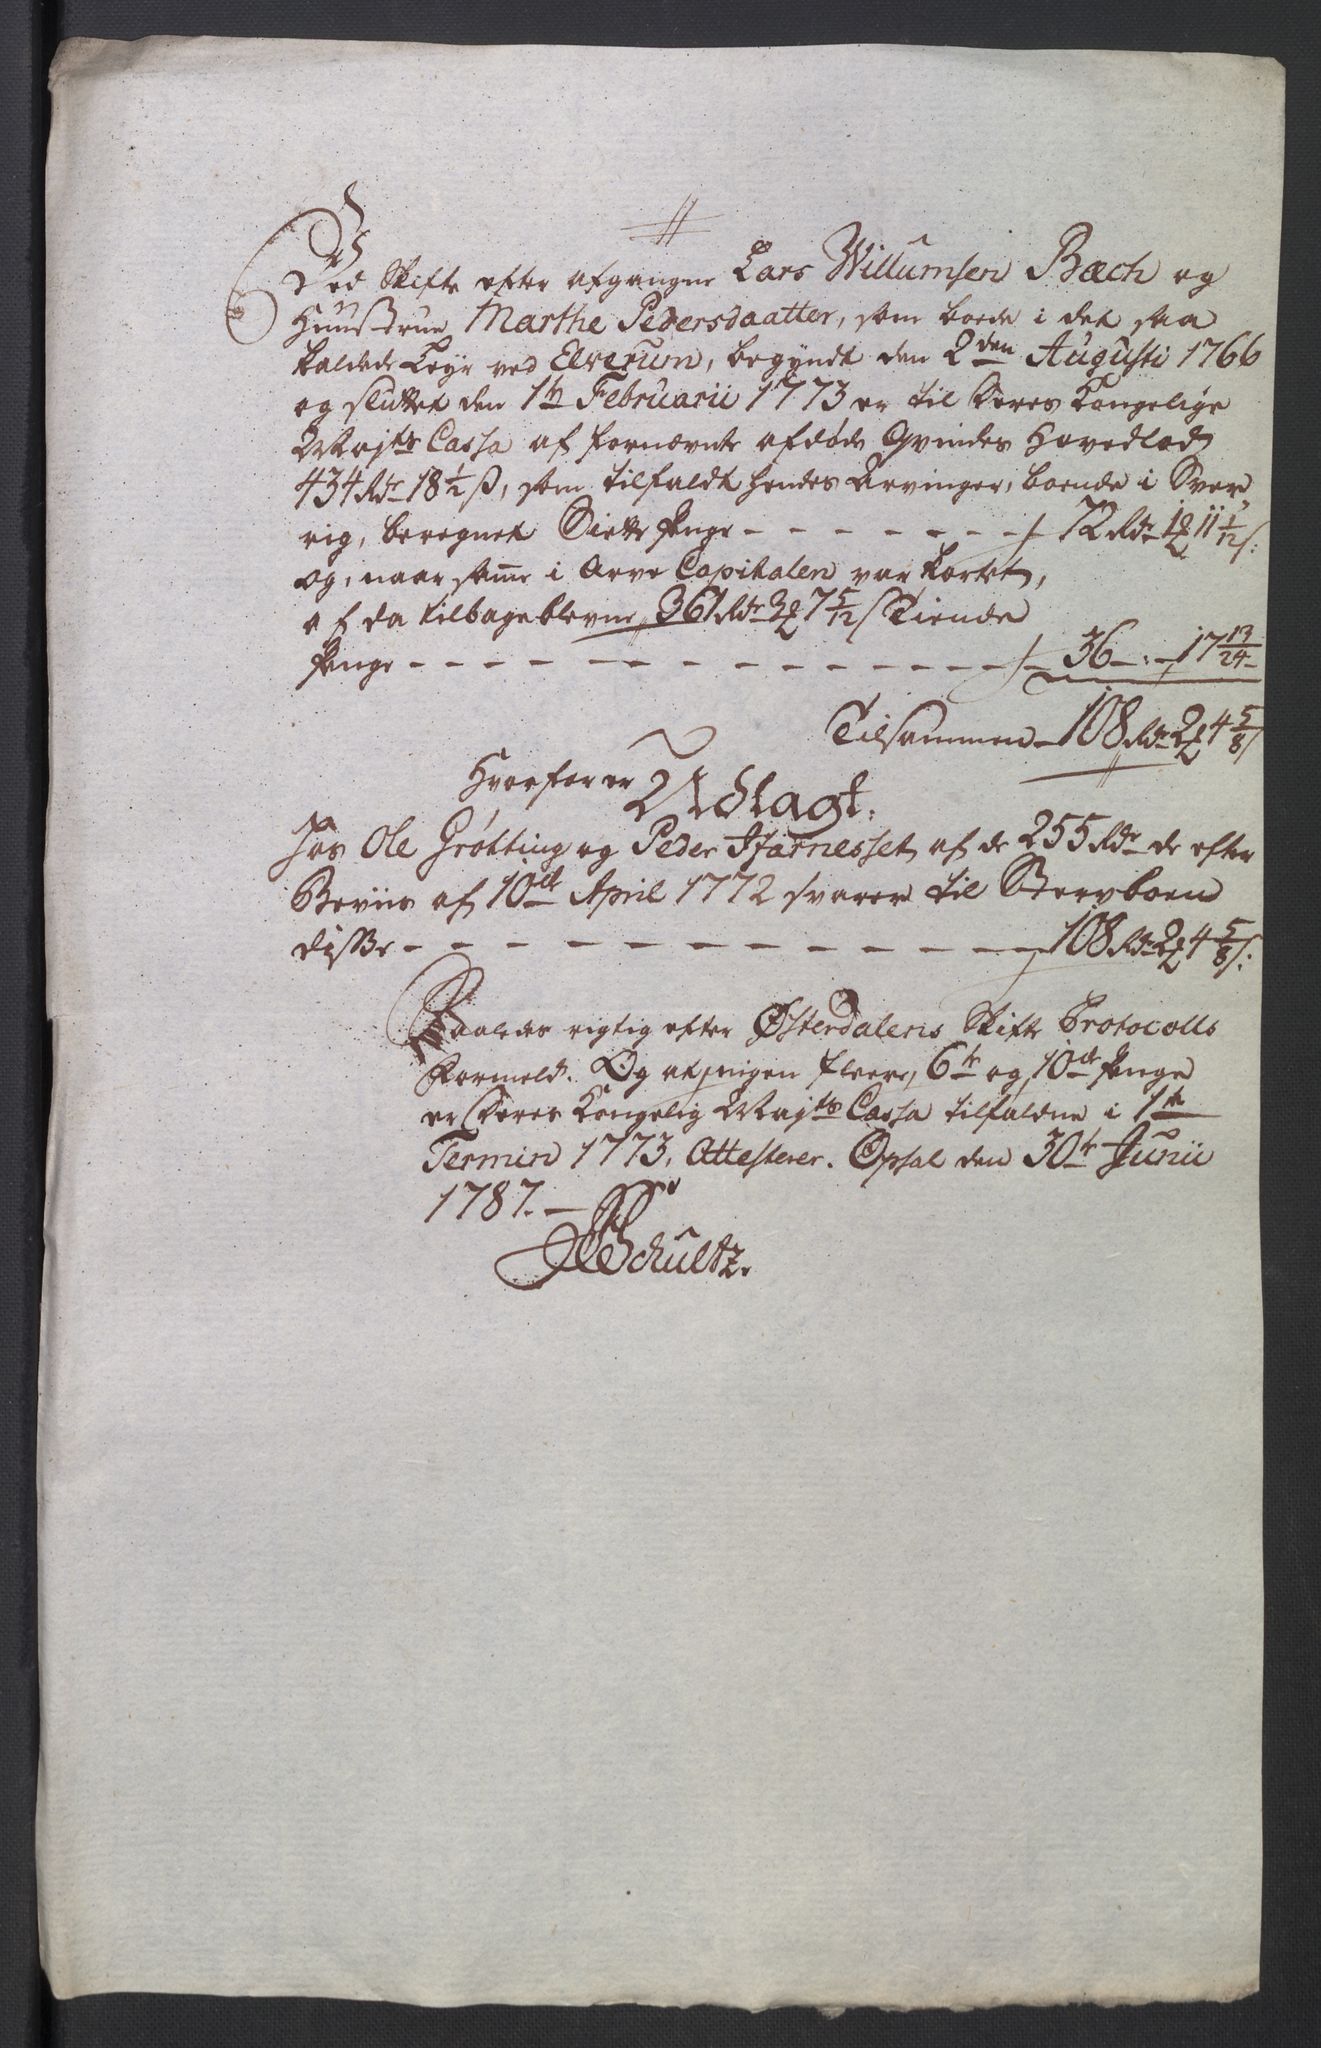 Ved Skifte efter afgangne Lars Willumsen Bæch og
Huustrue Marthe Pedersdaatter, som boede i det saa
kaldede Leyr ved Elverum, begyndt den 2den Augusti 1766
og sluttet den 1te Februarii 1773 er til Deres Kongelige
Majts Cassa af fornævnte afdøde Qvindes Hovedlod
434 Rdr 18½ ß, som tilfaldt hendes Arvinger, boende i Sver„
rig, beregnet Siette Penge - - - - - - - 72 Rdr 1 11 1/12 s:
og, naar samme i Arve Capitalen var kortet,
af da tilbageblevne 361 Rdr 3 7 5/12 s Tiende
Penge - - - - - - - - - - - - - - 36 - : - 17 13/24 -
Tilsammen - 108 Rdr 2 4 5/8 s
Hvorfor er Udlagt.
Hos Ole Grøtting og Peder Hjarnesset af de 255 Rdr de efter
Beviis af 10de April 1772 svarer til Stervboen
disse - - - - - - - - - - - - - - 108 Rdr 2 4 5/8 s:
Saaledes rigtig efter Østerdalens Skifte Protocolls
Formeld. Og at ingen fleere 6te og 10de Penge
er Deres Kongelig Majts Cassa tilfaldne i 1te
Termin 1773, Attesterer. Opsal den 30te Junii
1787. -
Schultz.